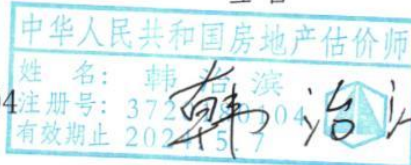 中华人民共和国房地产估价师
姓 名: 韩 治 滨
4注册号: 372 04
有效期止 202 .5.7
韩 治